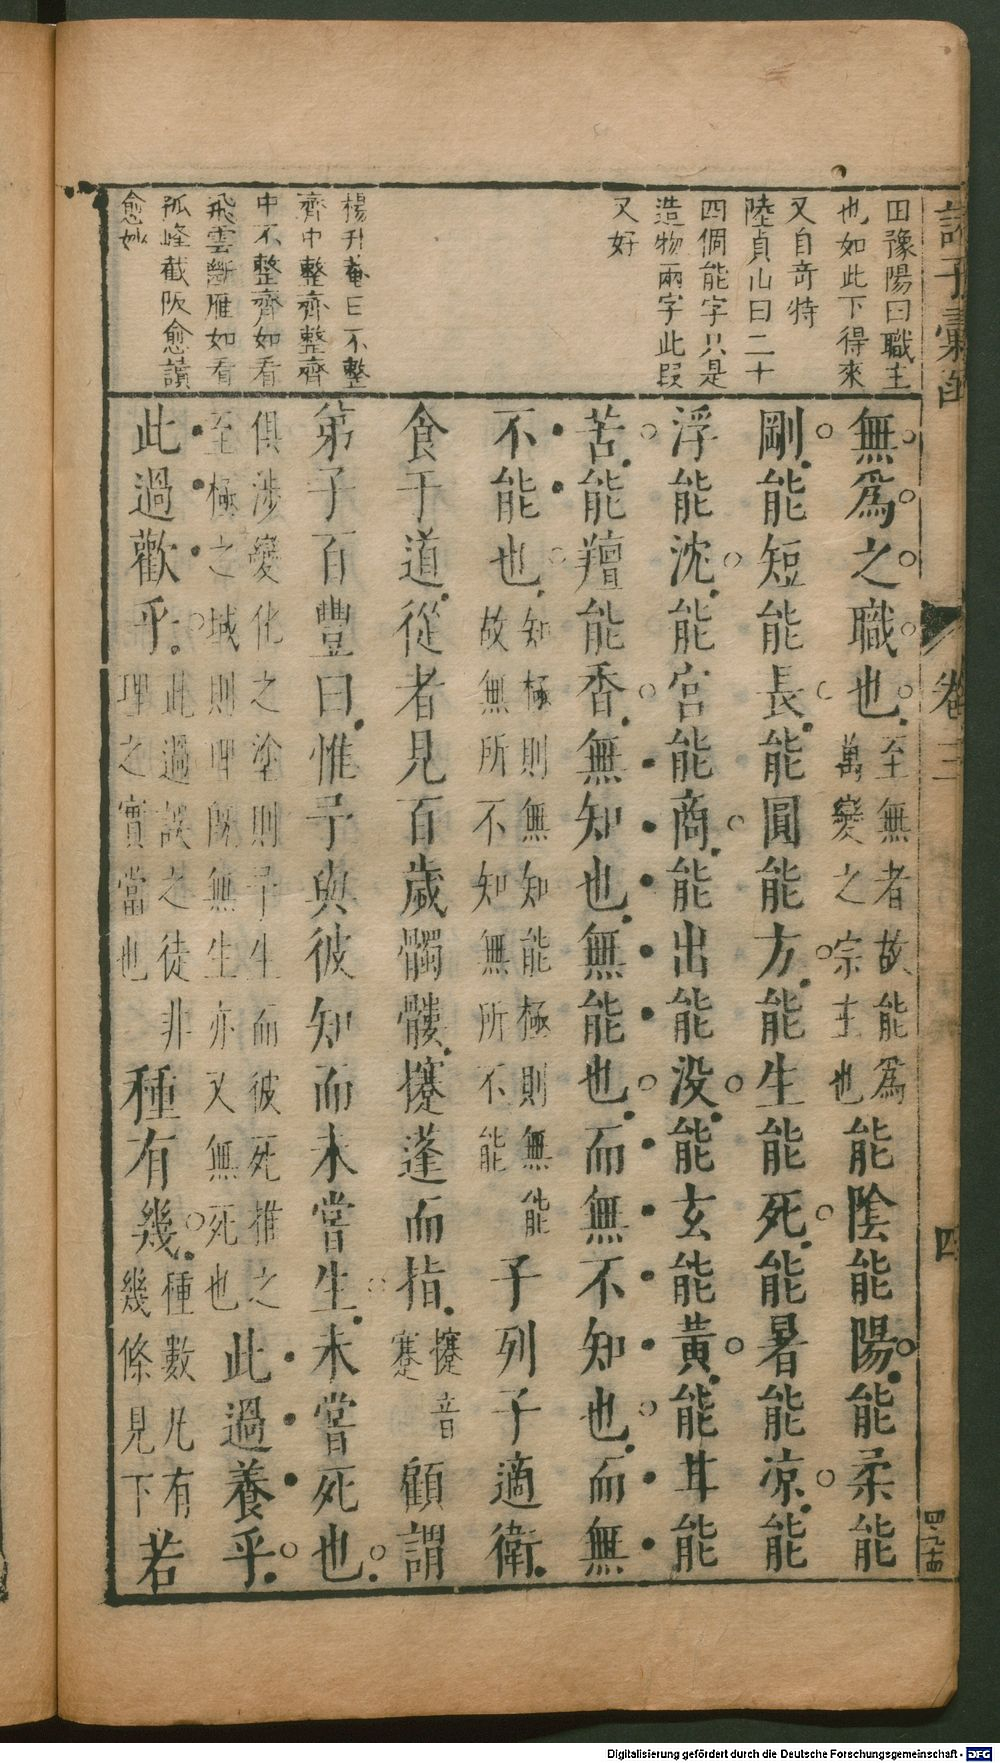 田豫陽曰職主
也如此下得來
又自奇特
陸貞山曰二十
四個能字只是
造物兩字此段
又好
楊升菴曰不整
齊中整齊整齊
中不整齊如看
飛雲斷雁如看
孤峰截阪愈讀
愈妙
無爲之職也至無者故能爲萬變之宗主也能陰能陽能柔能
剛能短能長能圓能方能生能死能暑能凉能
浮能沈能宮能商能出能没能玄能黃能甘能
苦能羶能香無知也無能也而無不知也而無
不能也知極則無知能極則無能故無所不知無所不能子列子適衛
食于道從者見百歲髑髏攓蓬而指攓音蹇顧謂
弟子百豐曰惟予與彼知而未嘗生未嘗死也
俱涉變化之塗則予生而彼死推之至極之域則理既無生亦又無死也此過養乎
此過歡乎此過誤之徒非理之實當也種有幾種數凡有幾條見下若
卷三
四
Digitalisierung gefördert durch die Deutsche Forschungsgemeinschaft - DFG